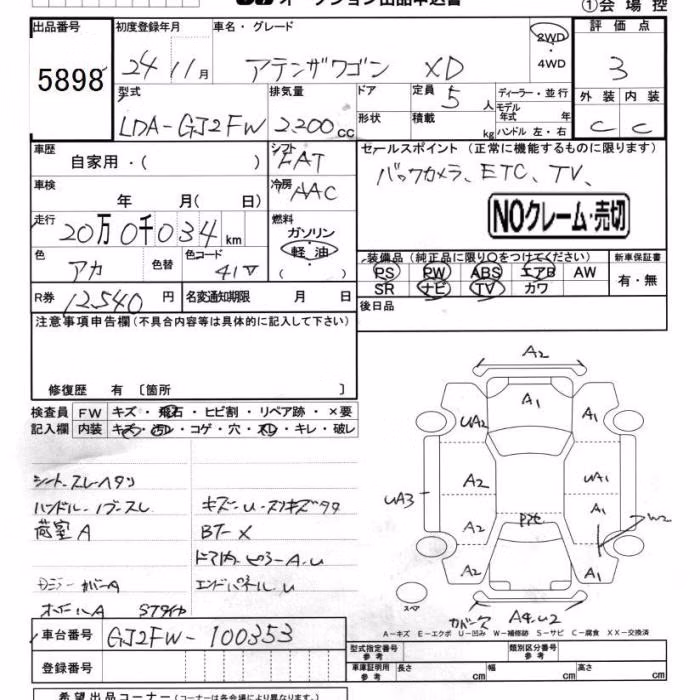 オークション出品申込書
①会場控
出品番号
5898
初度登録年月
24 11月
車名・グレード
アテンザワゴン XD
2WD
・4WD
評価点
3
型式
LDA-GJ2FW
排気量
2200cc
ドア
形状
定員 5人
積載 kg
ディーラー・並行
モデル年式 年
ハンドル 左・右
外装 内装
C C
車歴
自家用・( )
シフト
FAT
セールスポイント (正常に機能するものに限ります)
バックカメラ、ETC、TV、
NOクレーム・売切
車検
年 月( 日)
冷房
AAC
走行
20万0千034km
燃料
ガソリン
軽油
( )
色
アカ
色替
色コード
41V
装備品 (純正品に限り○をつけてください)
PS PW ABS エアB AW
SR ナビ TV カワ
新車保証書
有・無
R券 12540円
名変通知期限 月 日
後日品
注意事項申告欄(不具合内容等は具体的に記入して下さい)
修復歴 有 〔箇所 〕
検査員記入欄
FW キズ・飛石・ヒビ割・リペア跡・×要
内装 キズ・汚レ・コゲ・穴・スレ・キレ・破レ
シート・スレ・ヘタリ
ハンドル・ノブ・スレ
荷室A
キズ・U・スリキズタタ
BT-X
ドア内・ピラーA.U
エンドパネル.U
A2
A1
UA2
A1
A2
UA1
UA3
A1
W2
A2
A2
A1
スペア
カバー欠 A4.U2
A-キズ E-エクボ U-凹み W-補修跡 S-サビ C-腐食 XX-交換済
車台番号
GJ2FW-100353
登録番号
型式指定番号 参考
類別区分番号 参考
車庫証明用 参考
長さ cm 幅 cm 高さ cm
希望出品コーナー(コーナーは各会場により異なります。)